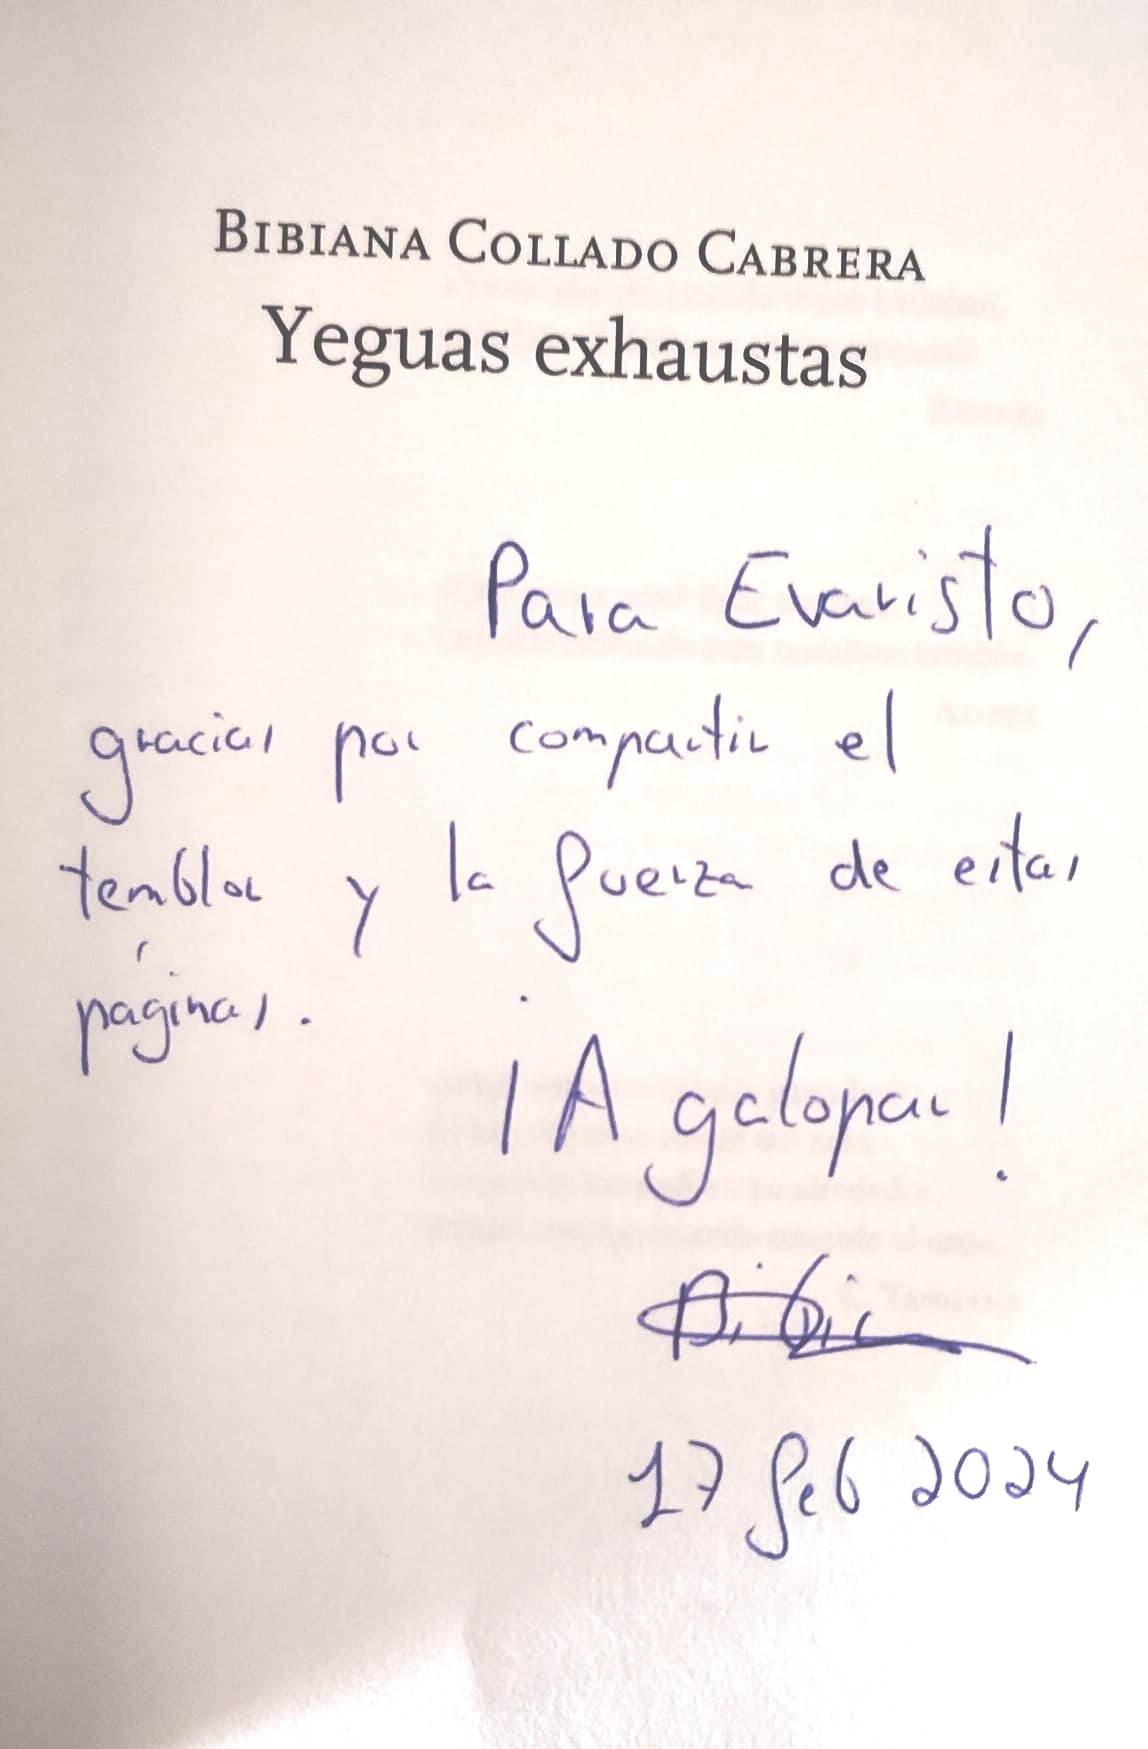 BIBIANA COLLADO CABRERA
Yeguas exhaustas
Para Evaristo,
gracias por compartir el
temblor y la fuerza de estas
páginas.
¡A galopar!
Bibi
17 feb 2024